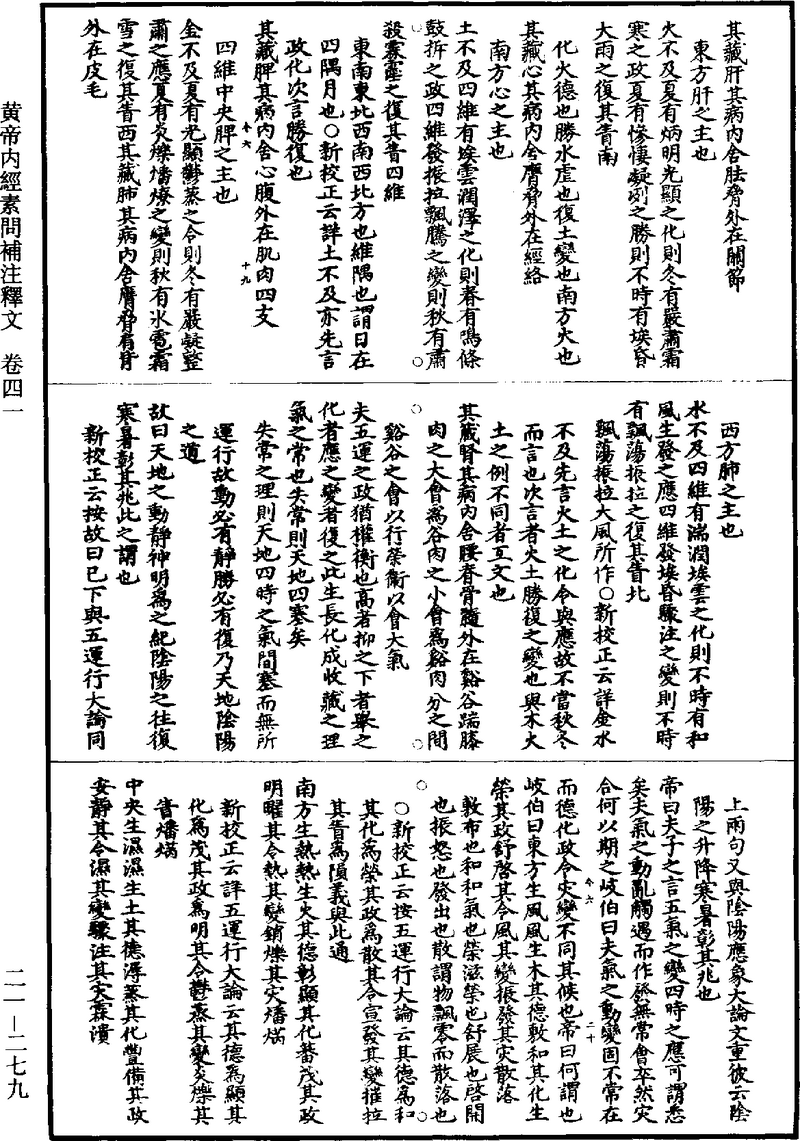 其藏肝其病內舍胠脅外在關節
東方肝之主也
火不及夏有炳明光顯之化則冬有嚴肅霜
寒之政夏有慘悽凝冽之勝則不時有埃昏
大雨之復其眚南
化火德也勝水虐也復土變也南方火也
其藏心其病內舍膺脅外在經絡
南方心之主也
土不及四維有埃雲潤澤之化則春有鳴條
鼓拆之政四維發振拉飄騰之變則秋有肅
殺霖霪之復其眚四維
東南東北西南西北方也維隅也謂日在
四隅月也○新校正云詳土不及亦先言
政化次言勝復也
其藏脾其病內舍心腹外在肌肉四支
四維中央脾之主也
金不及夏有光顯鬱蒸之令則冬有嚴凝整
肅之應夏有炎爍燔燎之變則秋有冰雹霜
雪之復其眚西其藏肺其病內舍膺脅肩背
外在皮毛
西方肺之主也
水不及四維有湍潤埃雲之化則不時有和
風生發之應四維發埃昏驟注之變則不時
有飄蕩振拉之復其眚北
飄蕩振拉大風所作○新校正云詳金水
不及先言火土之化令與應故不當秋冬
而言也次言者火土勝復之變也與木火
土之例不同者互文也
其藏腎其病內舍腰脊骨髓外在谿谷踹膝
肉之大會為谷肉之小會為谿肉分之間
谿谷之會以行榮衛以會大氣
夫五運之政猶權衡也高者抑之下者舉之
化者應之變者復之此生長化成收藏之理
氣之常也失常則天地四塞矣
失常之理則天地四時之氣閉塞而無所
運行故動必有靜勝必有復乃天地陰陽
之道
故曰天地之動靜神明為之紀陰陽之往復
寒暑彰其兆此之謂也
新校正云按故曰已下與五運行大論同
上兩句又與陰陽應象大論文重彼云陰
陽之升降寒暑彰其兆也
帝曰夫子之言五氣之變四時之應可謂悉
矣夫氣之動亂觸遇而作發無常會卒然灾
合何以期之岐伯曰夫氣之動變固不常在
而德化政令灾變不同其候也帝曰何謂也
岐伯曰東方生風風生木其德敷和其化生
榮其政舒啓其令風其變振發其灾散落
敷布也和和氣也榮滋榮也舒展也啓開
也振怒也發出也散謂物飄零而散落也
○新校正云按五運行大論云其德為和
其化為榮其政為散其令宣發其變摧拉
其眚為隕義與此通
南方生熱熱生火其德彰顯其化蕃茂其政
明曜其令熱其變銷爍其灾燔焫
新校正云詳五運行大論云其德為顯其
化為茂其政為明其令鬱蒸其變炎爍其
眚燔焫
中央生濕濕生土其德溽蒸其化豐備其政
安靜其令濕其變驟注其灾霖潰
黄帝内經素問補注釋文 卷四一
二一—二七九